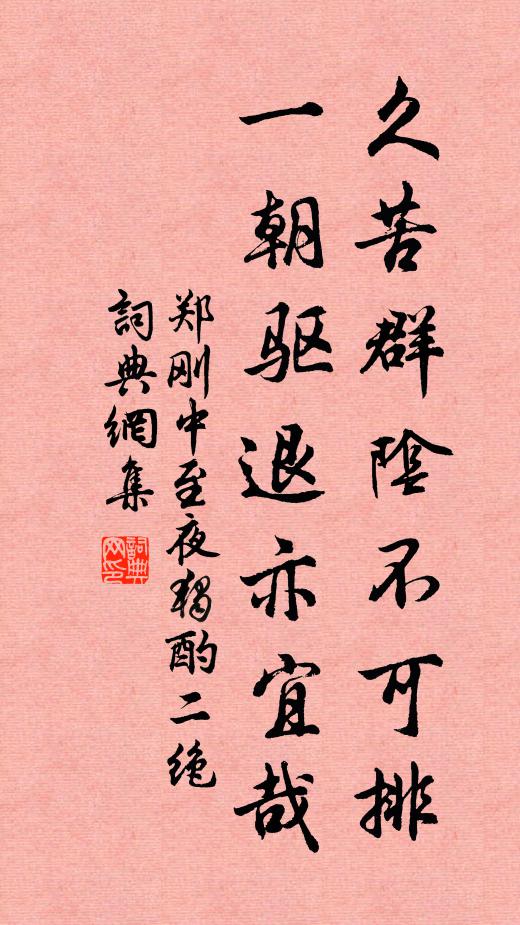 久苦群陰不可排
一朝驱退亦宜哉
郑刚中至夜独酌二绝
詞典網集
詞典网印